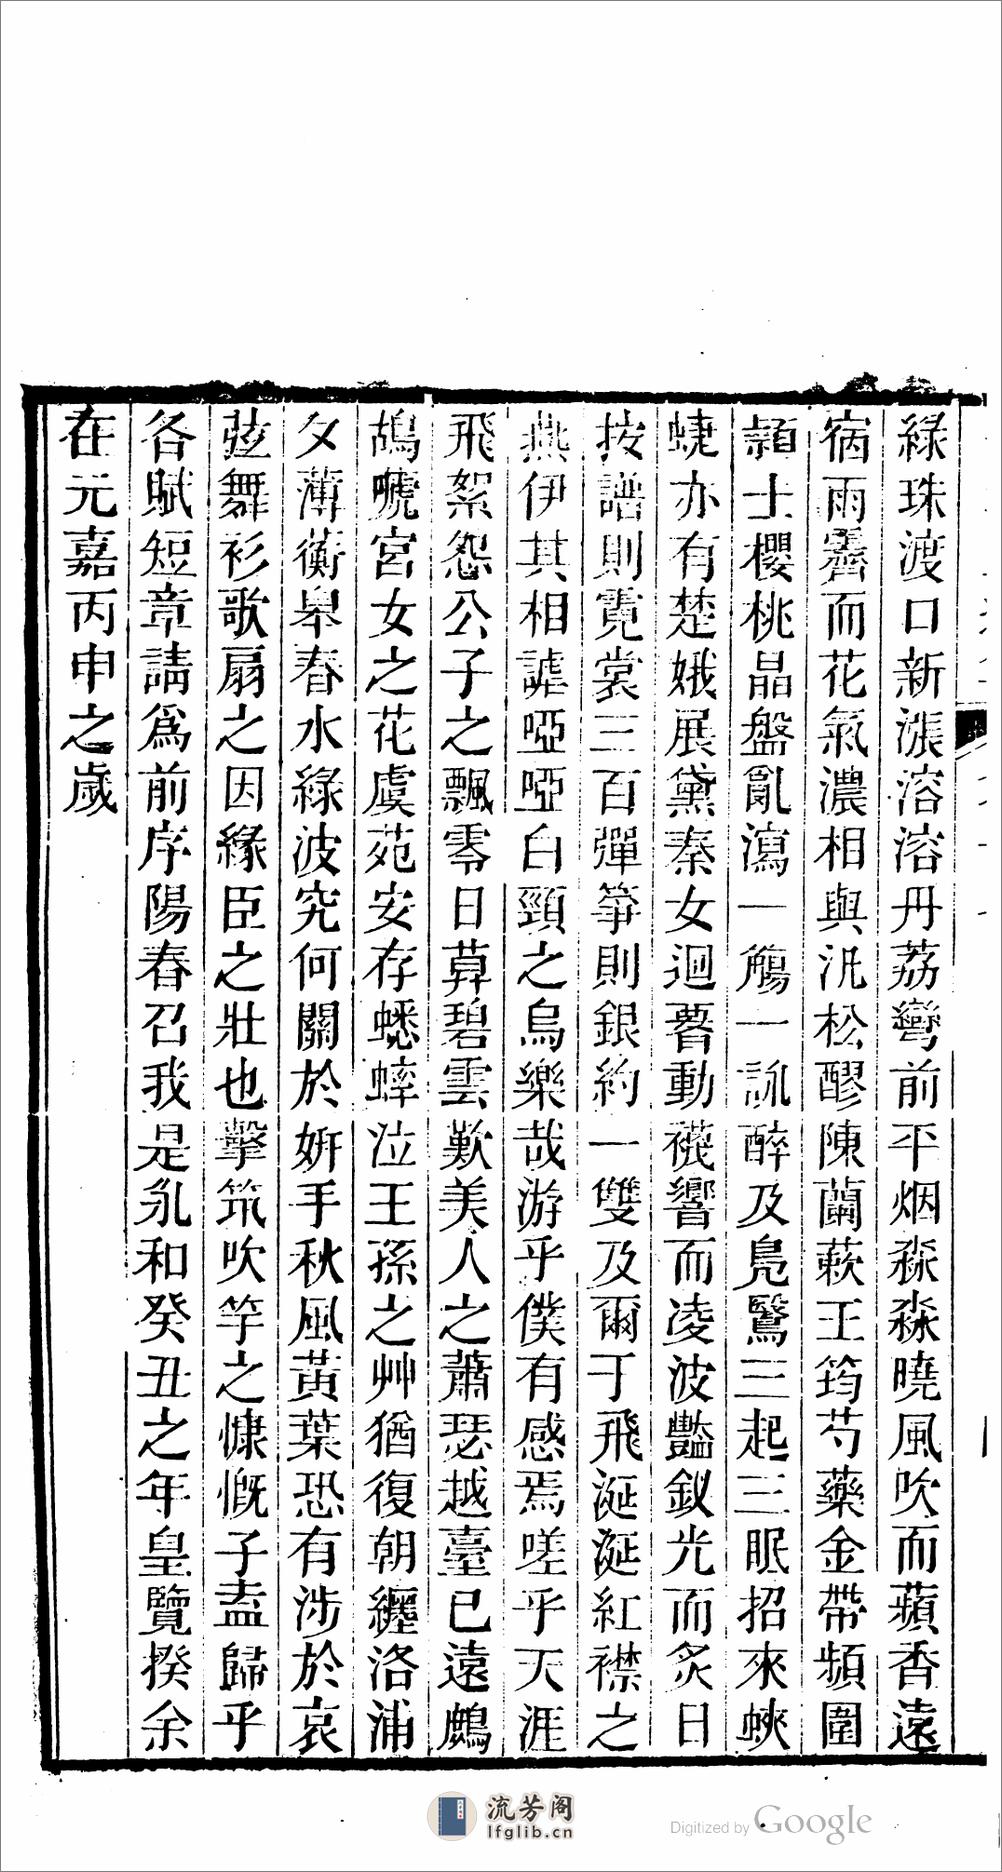 綠珠渡口新漲溶溶丹荔彎前平烟淼淼曉風吹而蘋香遠
宿雨霽而花氣濃相與汎松醪陳蘭蔌王筠芍藥金帶頻圍
穎士櫻桃晶盤亂瀉一觴一詠醉及鳧鷖三起三眠招來蛺
蜨亦有楚娥展黛秦女迴瞀動襪響而凌波豔釵光而炙日
按譜則霓裳三百彈箏則銀約一雙及爾于飛涎涎紅襟之
燕伊其相謔啞啞白頸之烏樂哉游乎僕有感焉嗟乎天涯
飛絮怨公子之飄零日暮碧雲歎美人之蕭瑟越臺已遠鷓
鴣嗁宮女之花虞苑安存蟋蟀泣王孫之艸猶復朝纚洛浦
夕薄蘅皋春水綠波究何關於姸手秋風黃葉恐有涉於哀
莚舞衫歌扇之因緣臣之壯也擊筑吹竽之慷慨子盍歸乎
各賦短章請爲前序陽春召我是永和癸丑之年皇覽揆余
在元嘉丙申之歲
流芳阁
lfglib.cn
Digitized by Google